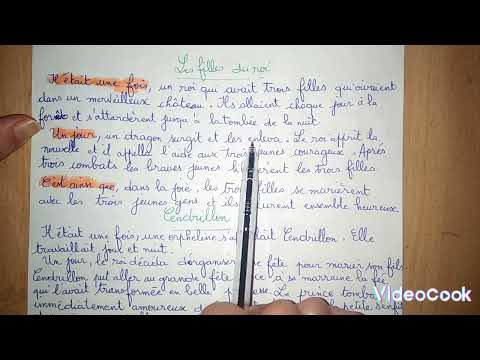 Les filles du roi
Il était une fois, un roi qui avait trois filles qui
dans un merveilleux château. Ils allaient chaque jour à la
forêt et s'attardèrent jusqu'à la tombée de la nuit.
Un jour, un dragon surgit et les enleva. Le roi apprit la
nouvelle et il appella l'aide aux trois jeunes courageux. Aprés
trois combats les braves jeunes les trois filles.
C'est ainsi que, dans la joie, les trois filles se marièrent
avec les trois jeunes gens et ils ensemble heureux
Cendrillon
Il était une fois, une orpheline Cendrillon. Elle
travaillait jour et nuit.
Un jour, le roi décida d'organiser fête pour marier son fils
Cendrillon put aller au grande fête à sa marraine la fée
qui l'avait transformée en belle Le prince tomba
immédiatement amoureux
VideoCook